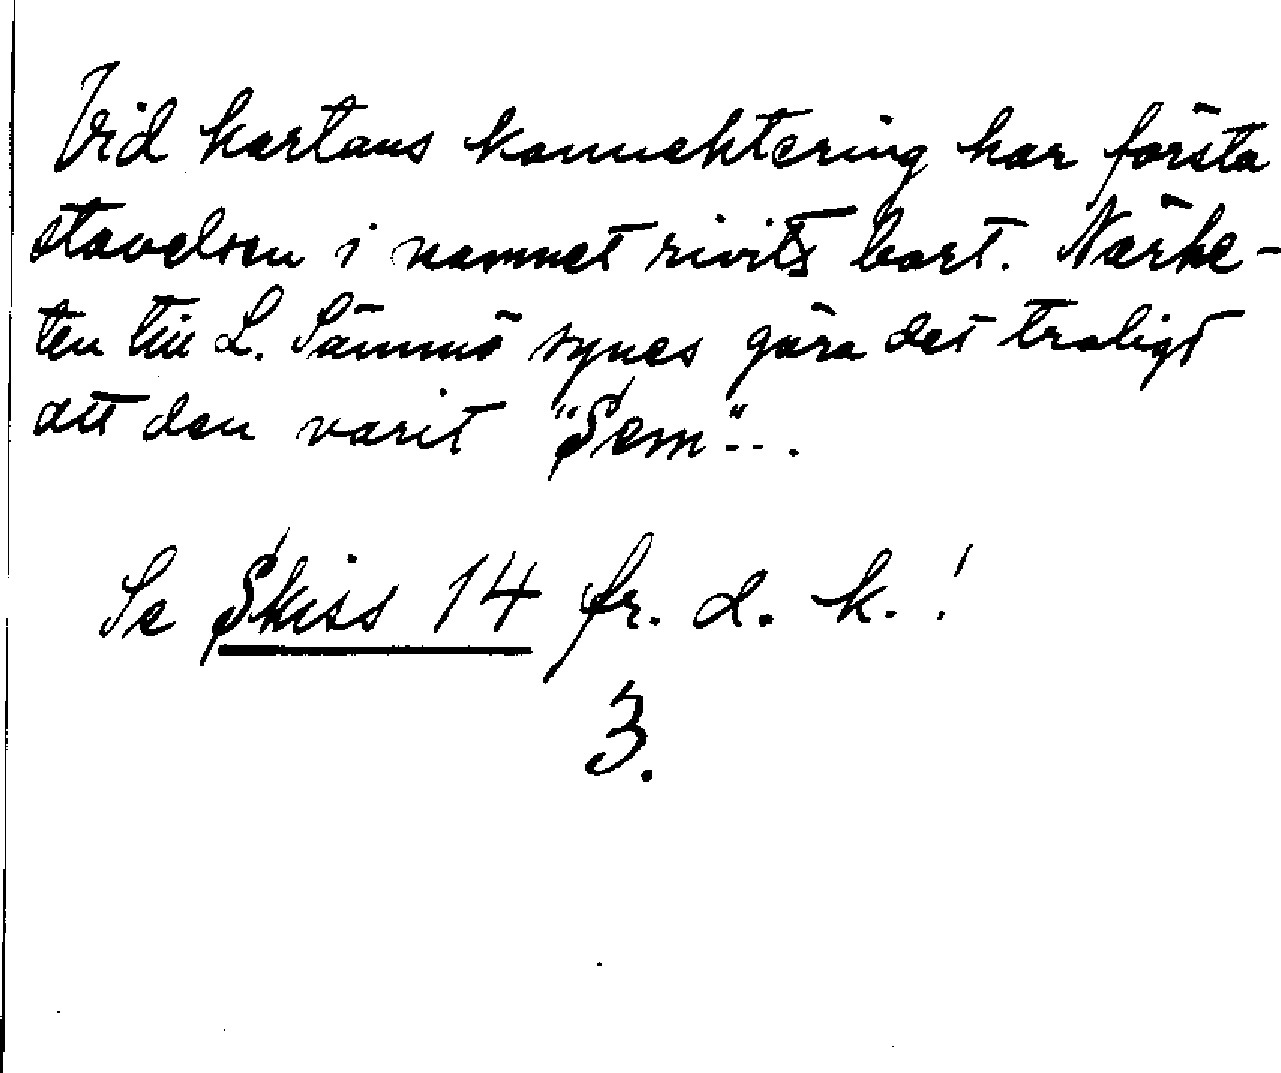 Vid kartans konnektering har första
stavelsen i namnet rivits bort. Närhe-
ten till L. Sämmö synes göra det troligt
att den varit "Sem"...
Se Skiss 14 fr. d. k.!
3.